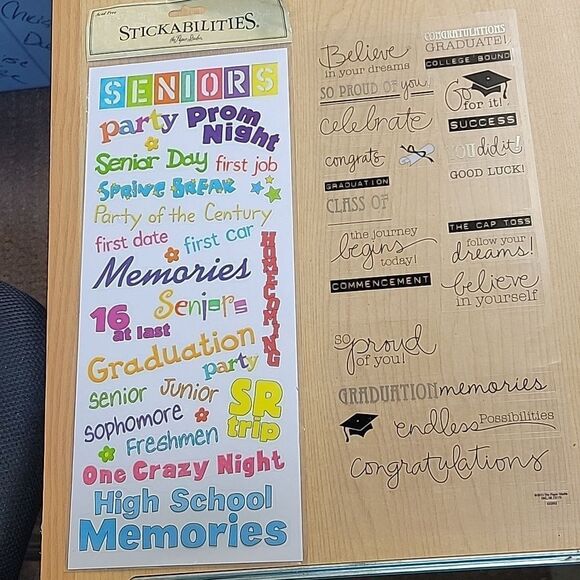 Acid Free
STICKABILITIES.
the Paper Studio
SENIORS
party
Prom
Night
Senior Day
first job
SPRING BREAK
Party of the Century
first date
first car
HOMECOMING
Memories
16
at last
Seniors
Graduation
party
Senior
Junior
SR
trip
sophomore
Freshmen
One Crazy Night
High School
Memories
Believe
in your dreams
SO PROUD OF you!
celebrate
congrats
GRADUATION
CLASS OF
the journey
begins
today!
COMMENCEMENT
CONGRATULATIONS
GRADUATE!
COLLEGE BOUND
Go
for it!
SUCCESS
YOU did it!
GOOD LUCK!
THE CAP TOSS
follow your
dreams!
believe
in yourself
so
proud
of you!
GRADUATION memories
endless Possibilities
congratulations